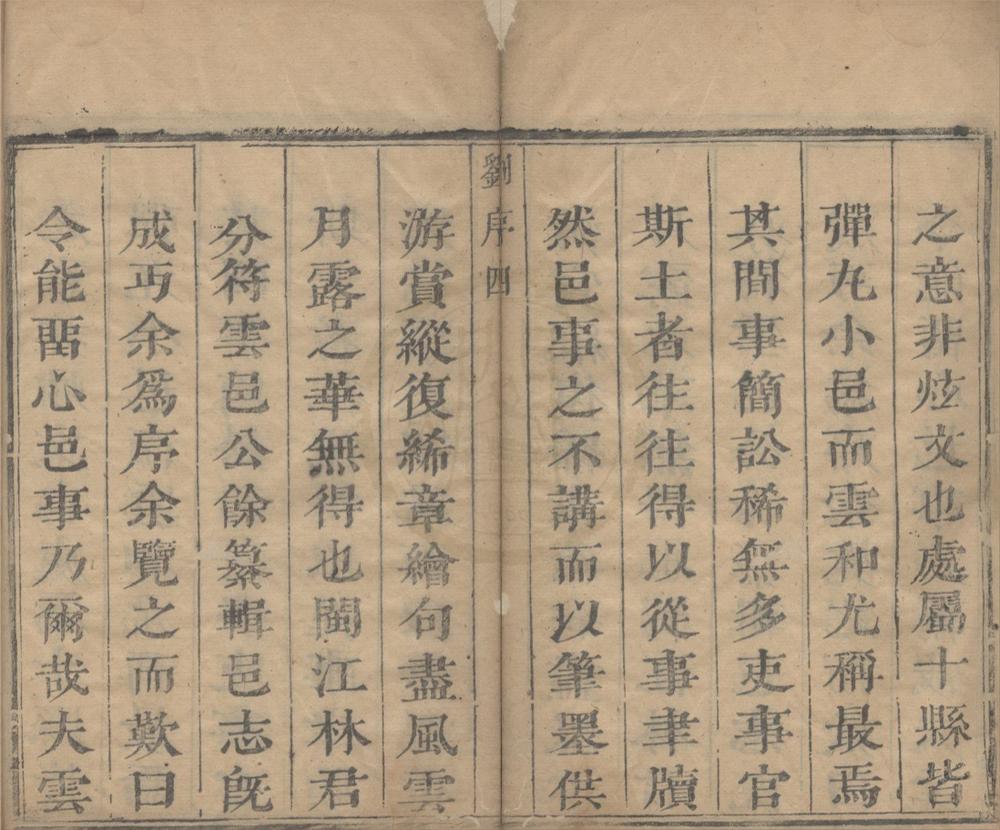 之意非炫文也處屬十縣皆
彈丸小邑而雲和尤稱最焉
其間事簡訟稀無多吏事官
斯土者往往得以從事聿牘
然邑事之不講而以筆墨供
劉序四
游賞縱復絺章繪句盡風雲
月露之華無得也閩江林君
分符雲邑公餘纂輯邑志既
成丐余為序余覽之而歎曰
令能畱心邑事乃爾哉夫雲